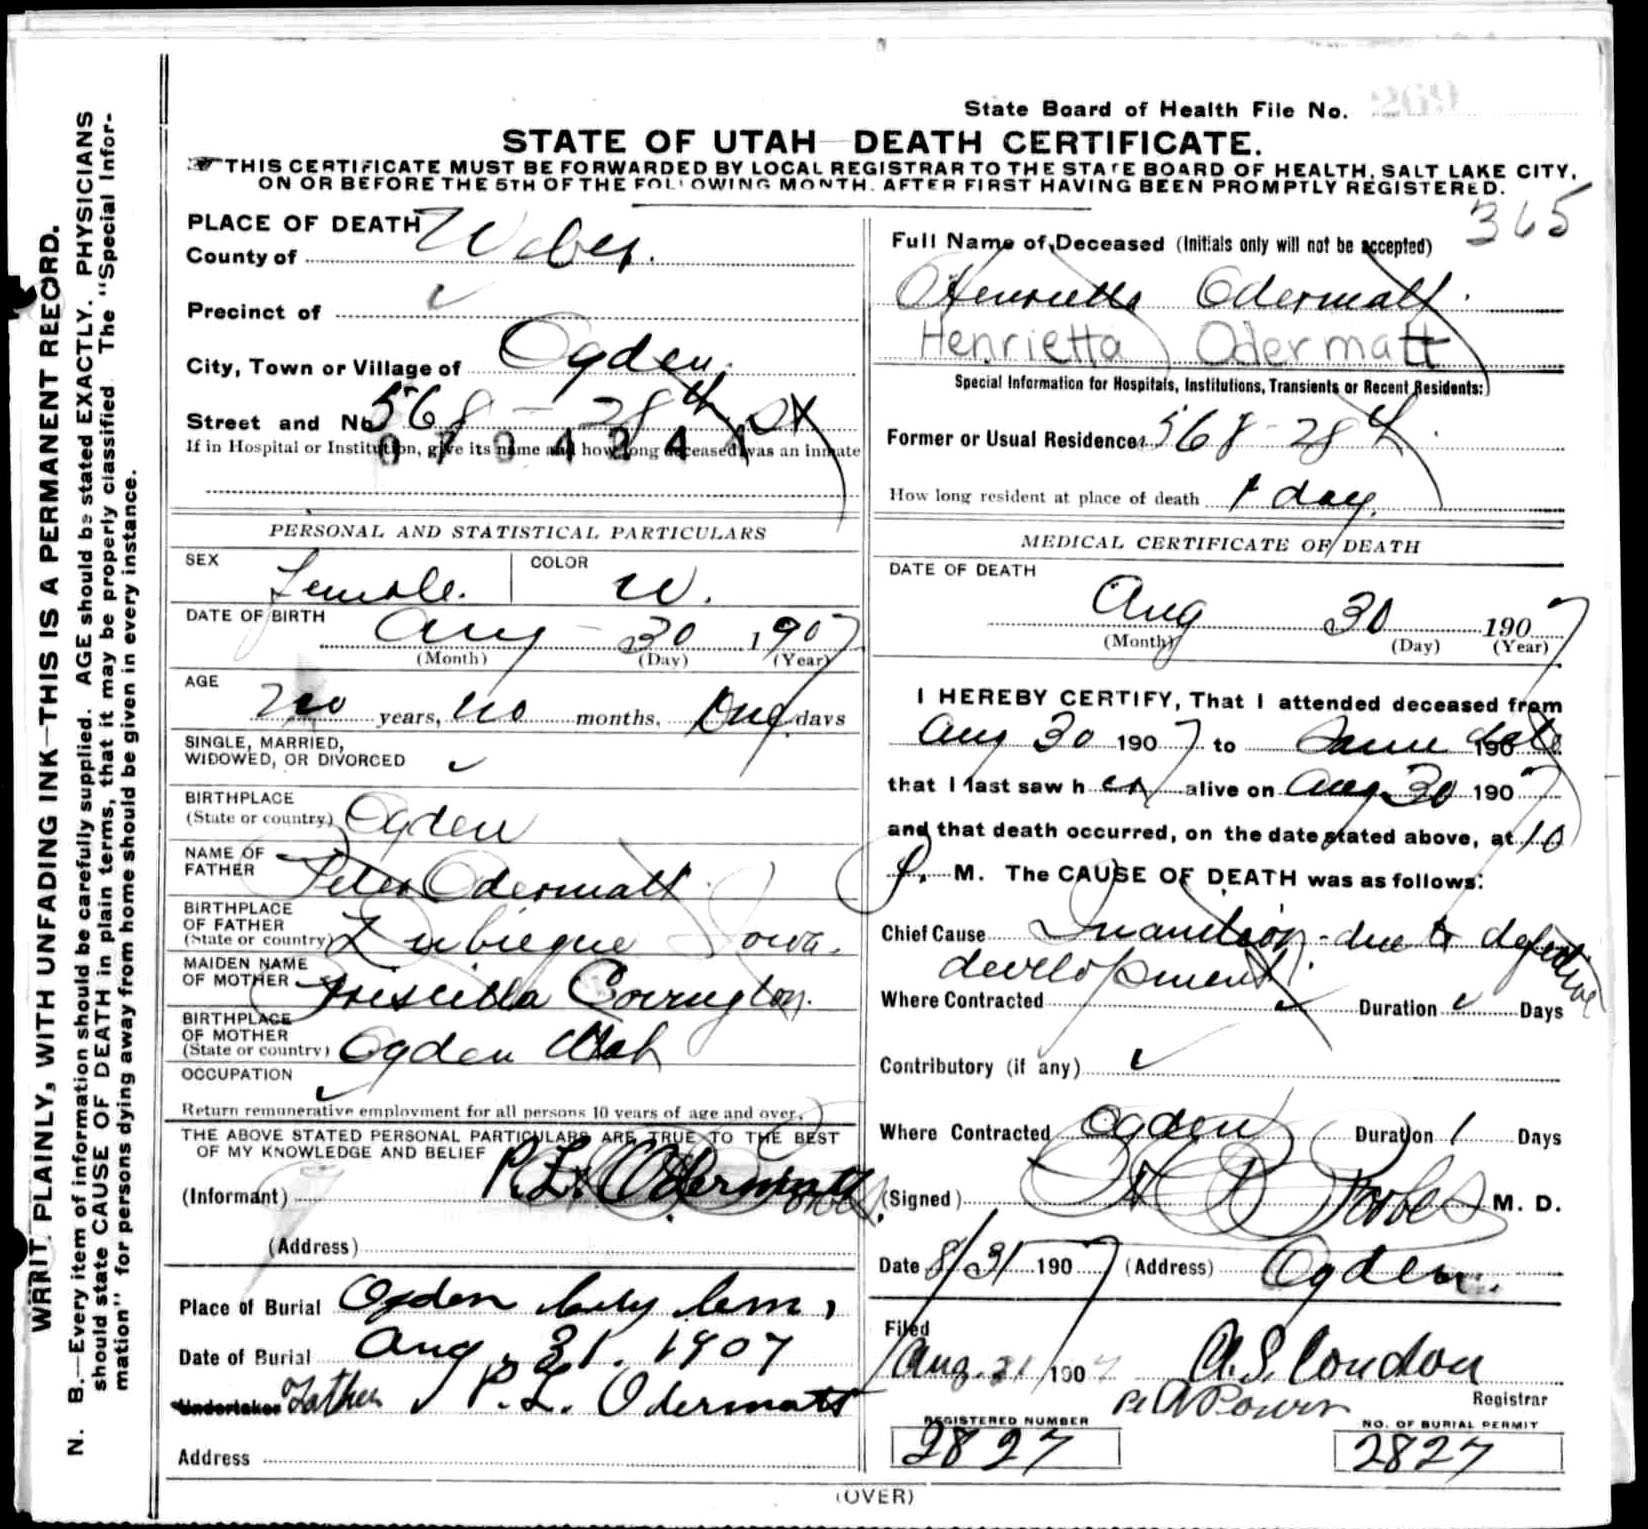 State Board of Health File No. 269
STATE OF UTAH—DEATH CERTIFICATE.
THIS CERTIFICATE MUST BE FORWARDED BY LOCAL REGISTRAR TO THE STATE BOARD OF HEALTH, SALT LAKE CITY,
ON OR BEFORE THE 5TH OF THE FOLLOWING MONTH, AFTER FIRST HAVING BEEN PROMPTLY REGISTERED.
WRITE PLAINLY, WITH UNFADING INK—THIS IS A PERMANENT RECORD.
N. B.—Every item of information should be carefully supplied. AGE should be stated EXACTLY. PHYSICIANS
should state CAUSE OF DEATH in plain terms, that it may be properly classified. The "Special Infor-
mation" for persons dying away from home should be given in every instance.
PLACE OF DEATH
County of Weber.
Precinct of ✓
City, Town or Village of Ogden.
Street and No. 568 - 28th St
If in Hospital or Institution, give its name and how long deceased was an inmate
PERSONAL AND STATISTICAL PARTICULARS
SEX Female. COLOR W.
DATE OF BIRTH Aug - 30 1907
(Month) (Day) (Year)
AGE
no years, no months, One days
SINGLE, MARRIED,
WIDOWED, OR DIVORCED ✓
BIRTHPLACE
(State or country) Ogden
NAME OF
FATHER Peter Odermatt.
BIRTHPLACE
OF FATHER
(State or country) Iowa.
MAIDEN NAME
OF MOTHER Priscilla Covington.
BIRTHPLACE
OF MOTHER
(State or country) Ogden Utah
OCCUPATION ✓
Return remunerative employment for all persons 10 years of age and over.
THE ABOVE STATED PERSONAL PARTICULARS ARE TRUE TO THE BEST
OF MY KNOWLEDGE AND BELIEF
(Informant) P. L. Odermatt
(Address)
Place of Burial Ogden City Cem,
Date of Burial Aug. 31. 1907
Undertaker Father P. L. Odermatt
Address
365
Full Name of Deceased (Initials only will not be accepted)
Henrietta Odermatt.
Henrietta Odermatt
Special Information for Hospitals, Institutions, Transients or Recent Residents:
Former or Usual Residence 568 - 28th.
How long resident at place of death 1 day.
MEDICAL CERTIFICATE OF DEATH
DATE OF DEATH
Aug 30 1907
(Month) (Day) (Year)
I HEREBY CERTIFY, That I attended deceased from
Aug 30 1907 to Same date 190
that I last saw h er alive on Aug 30 1907
and that death occurred, on the date stated above, at 10
P. M. The CAUSE OF DEATH was as follows:
Chief Cause Inanition - due to defective
development.
Where Contracted ✓ Duration ✓ Days
Contributory (if any) ✓
Where Contracted Ogden Duration 1 Days
(Signed) Forbes M. D.
Date 8/31 1907 (Address) Ogden.
Filed
Aug. 31 1907 A. S. Condon
Registrar
REGISTERED NUMBER
2827
NO. OF BURIAL PERMIT
2827
(OVER)